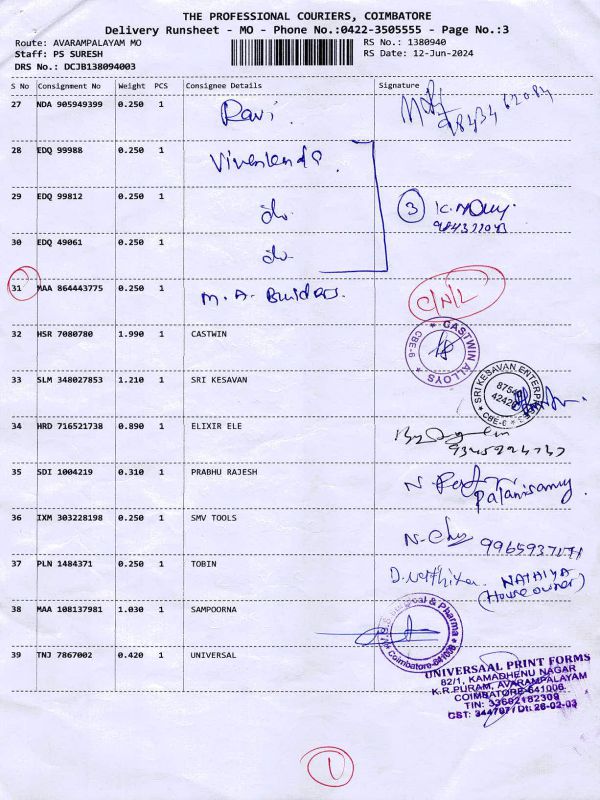 THE PROFESSIONAL COURIERS, COIMBATORE
Delivery Runsheet - MO - Phone No.:0422-3505555 - Page No.:3
Route: AVARAMPALAYAM MO
RS No.: 1380940
Staff: PS SURESH
RS Date: 12-Jun-2024
DRS No.: DCJB138094003
S No Consignment No Weight PCS Consignee Details Signature
27 NDA 905949399 0.250 1 Ravi.
28 EDQ 99988 0.250 1
29 EDQ 99812 0.250 1 do
3
30 EDQ 49061 0.250 1 do
31 MAA 864443775 0.250 1 M. A. Builders. C/N/L
32 HSR 7080780 1.990 1 CASTWIN
CASTWIN ALLOYS CBE-6
33 SLM 348027853 1.210 1 SRI KESAVAN
SRI KESAVAN CBE-6
34 HRD 716521738 0.890 1 ELIXIR ELE
35 SDI 1004219 0.310 1 PRABHU RAJESH
Palanisamy
36 IXM 303228198 0.250 1 SMV TOOLS
37 PLN 1484371 0.250 1 TOBIN
(House owner)
38 MAA 108137981 1.030 1 SAMPOORNA
& Pharma Coimbatore-641006
39 TNJ 7867002 0.420 1 UNIVERSAL
UNIVERSAAL PRINT FORMS
82/1, KAMADHENU NAGAR
K.R.PURAM, AVARAMPALAYAM
COIMBATORE-641006.
TIN: 33602182309
CST: 344707/Dt: 26-02-03
1